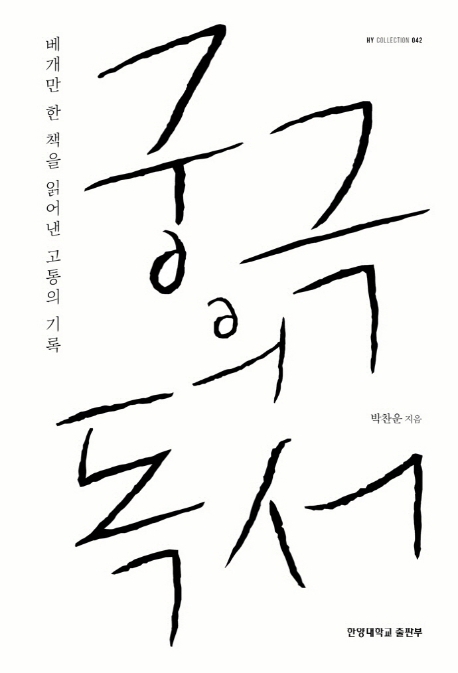 베개만 한 책을 읽어낸 고통의 기록
HY COLLECTION 042
궁극
의
독서
박찬운 지음
한양대학교 출판부